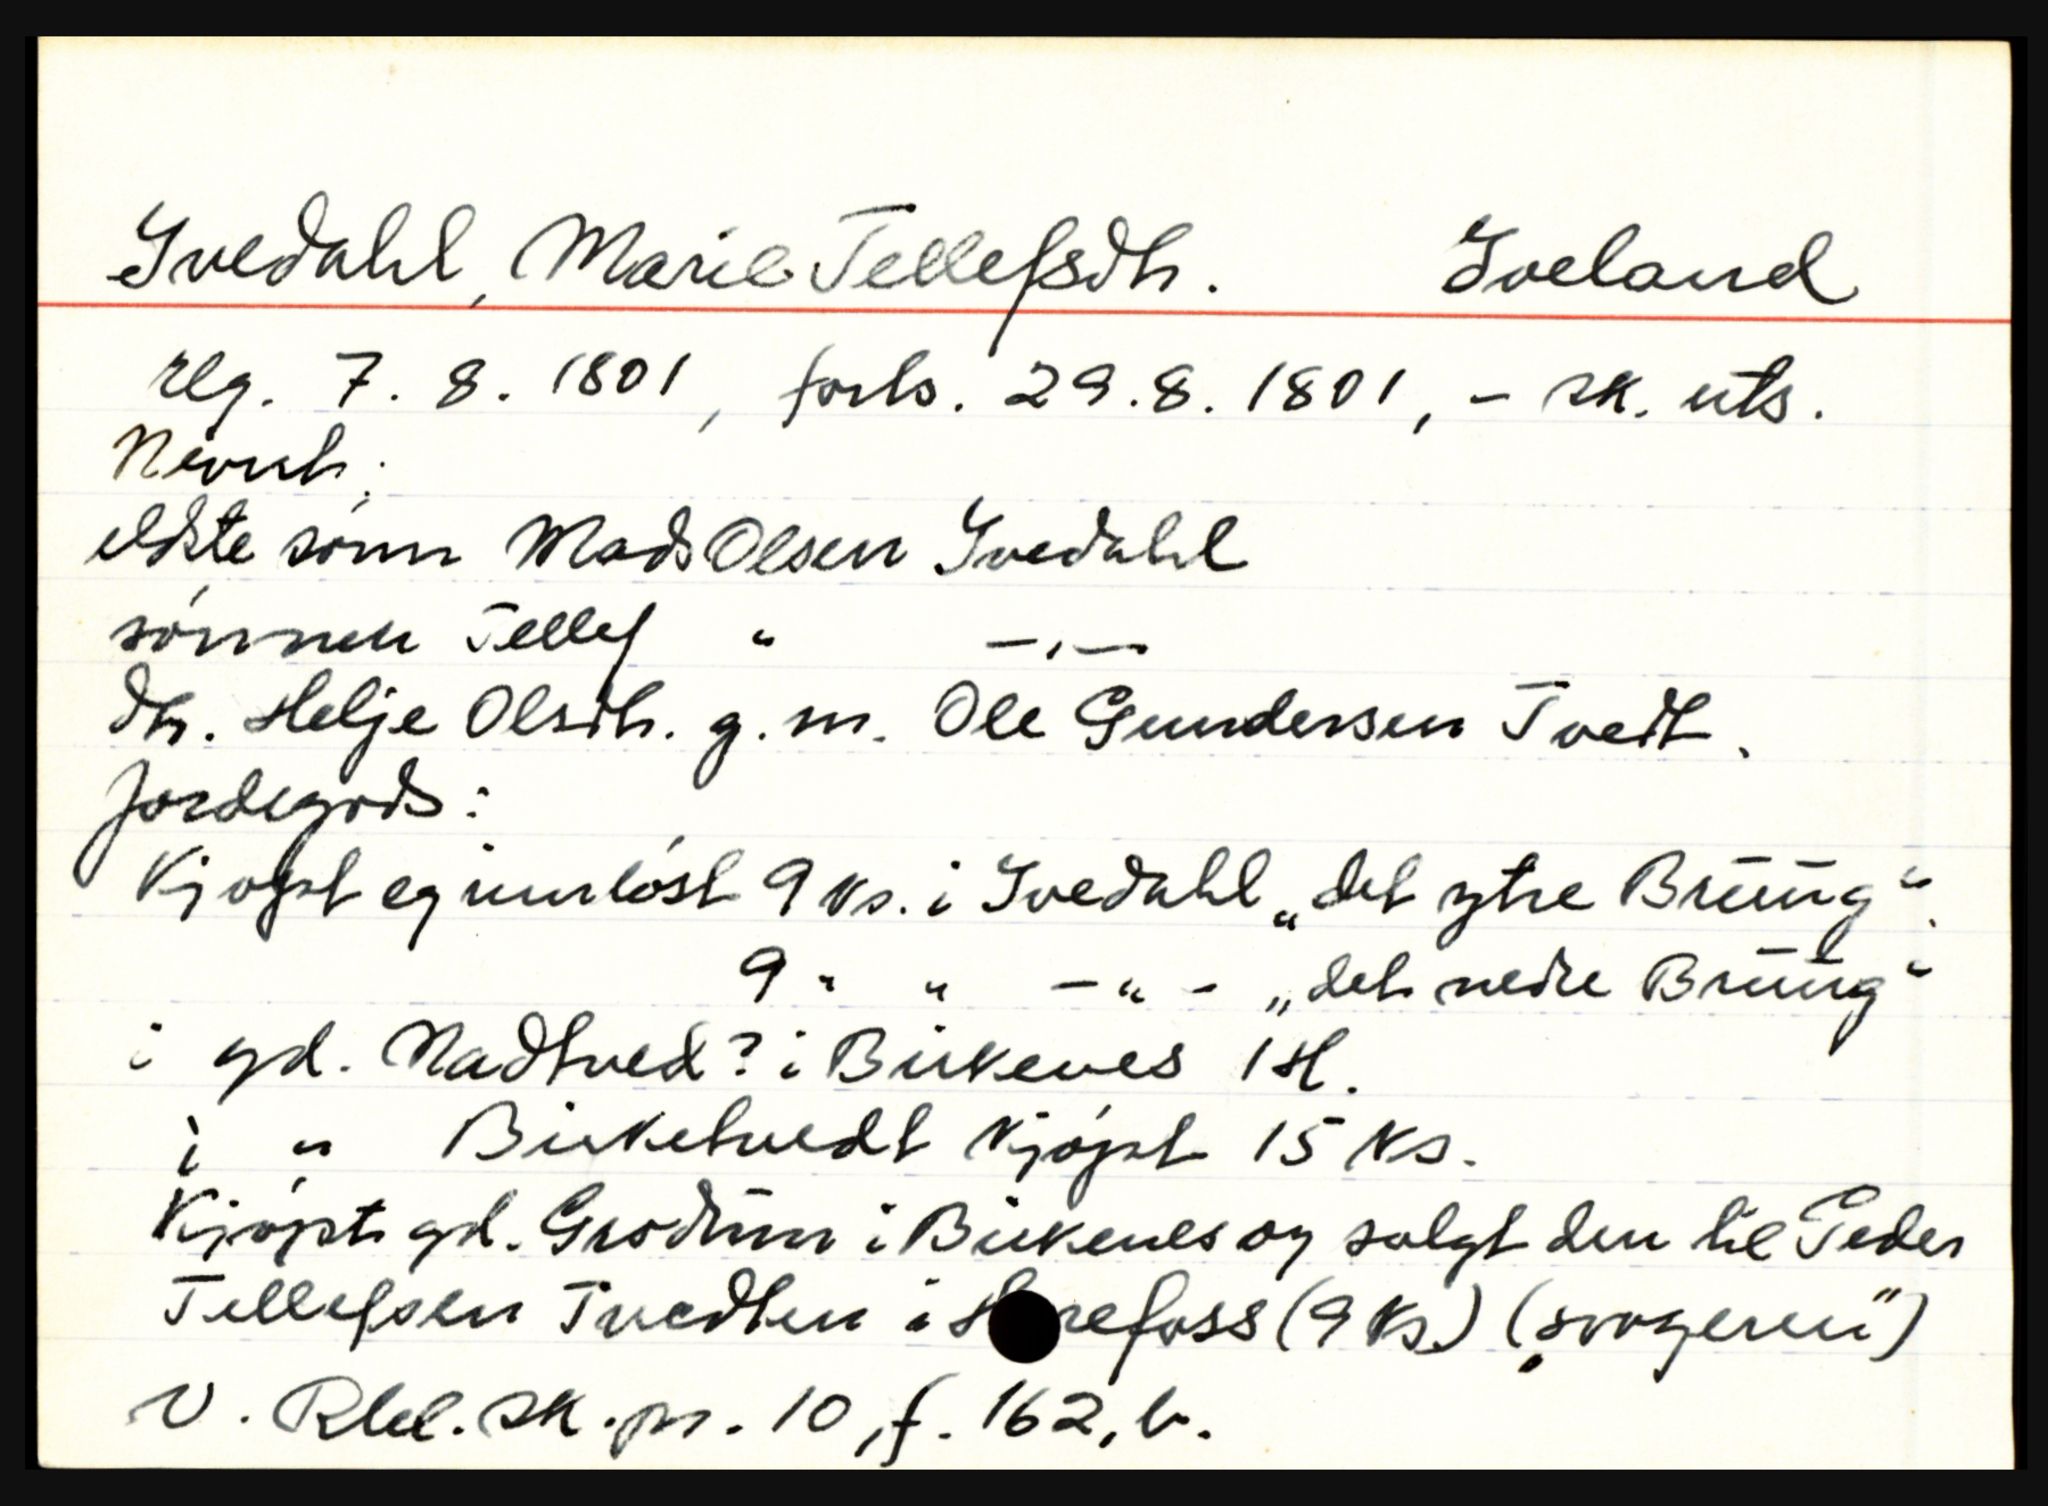 Ivedahl, Marie Tellefsdtr. Iveland
reg. 7.8.1801, forts. 29.8.1801, - sk. uts.
Nevnt:
eldste sønn Mads Olsen Ivedahl
sønnen Tellef " -,-
dtr. Helje Olsdtr. g.m. Ole Gundersen Tvedt.
Jordegods:
Kjøpt og innløst 9 ks. i Ivedahl „det ytre Bruug".
9 " " -"- „det nedre Bruug"
i gd. Nadtved? i Birkenes 1 H.
i " Birketvedt kjøpt 15 ks.
Kjøpt gd. Grødum i Birkenes og solgt den til Peder
Tellefsen Tvedten i H refoss (9 ks.) („svogeren")
V. Rbl. sk. pr. 10, f. 162, b.